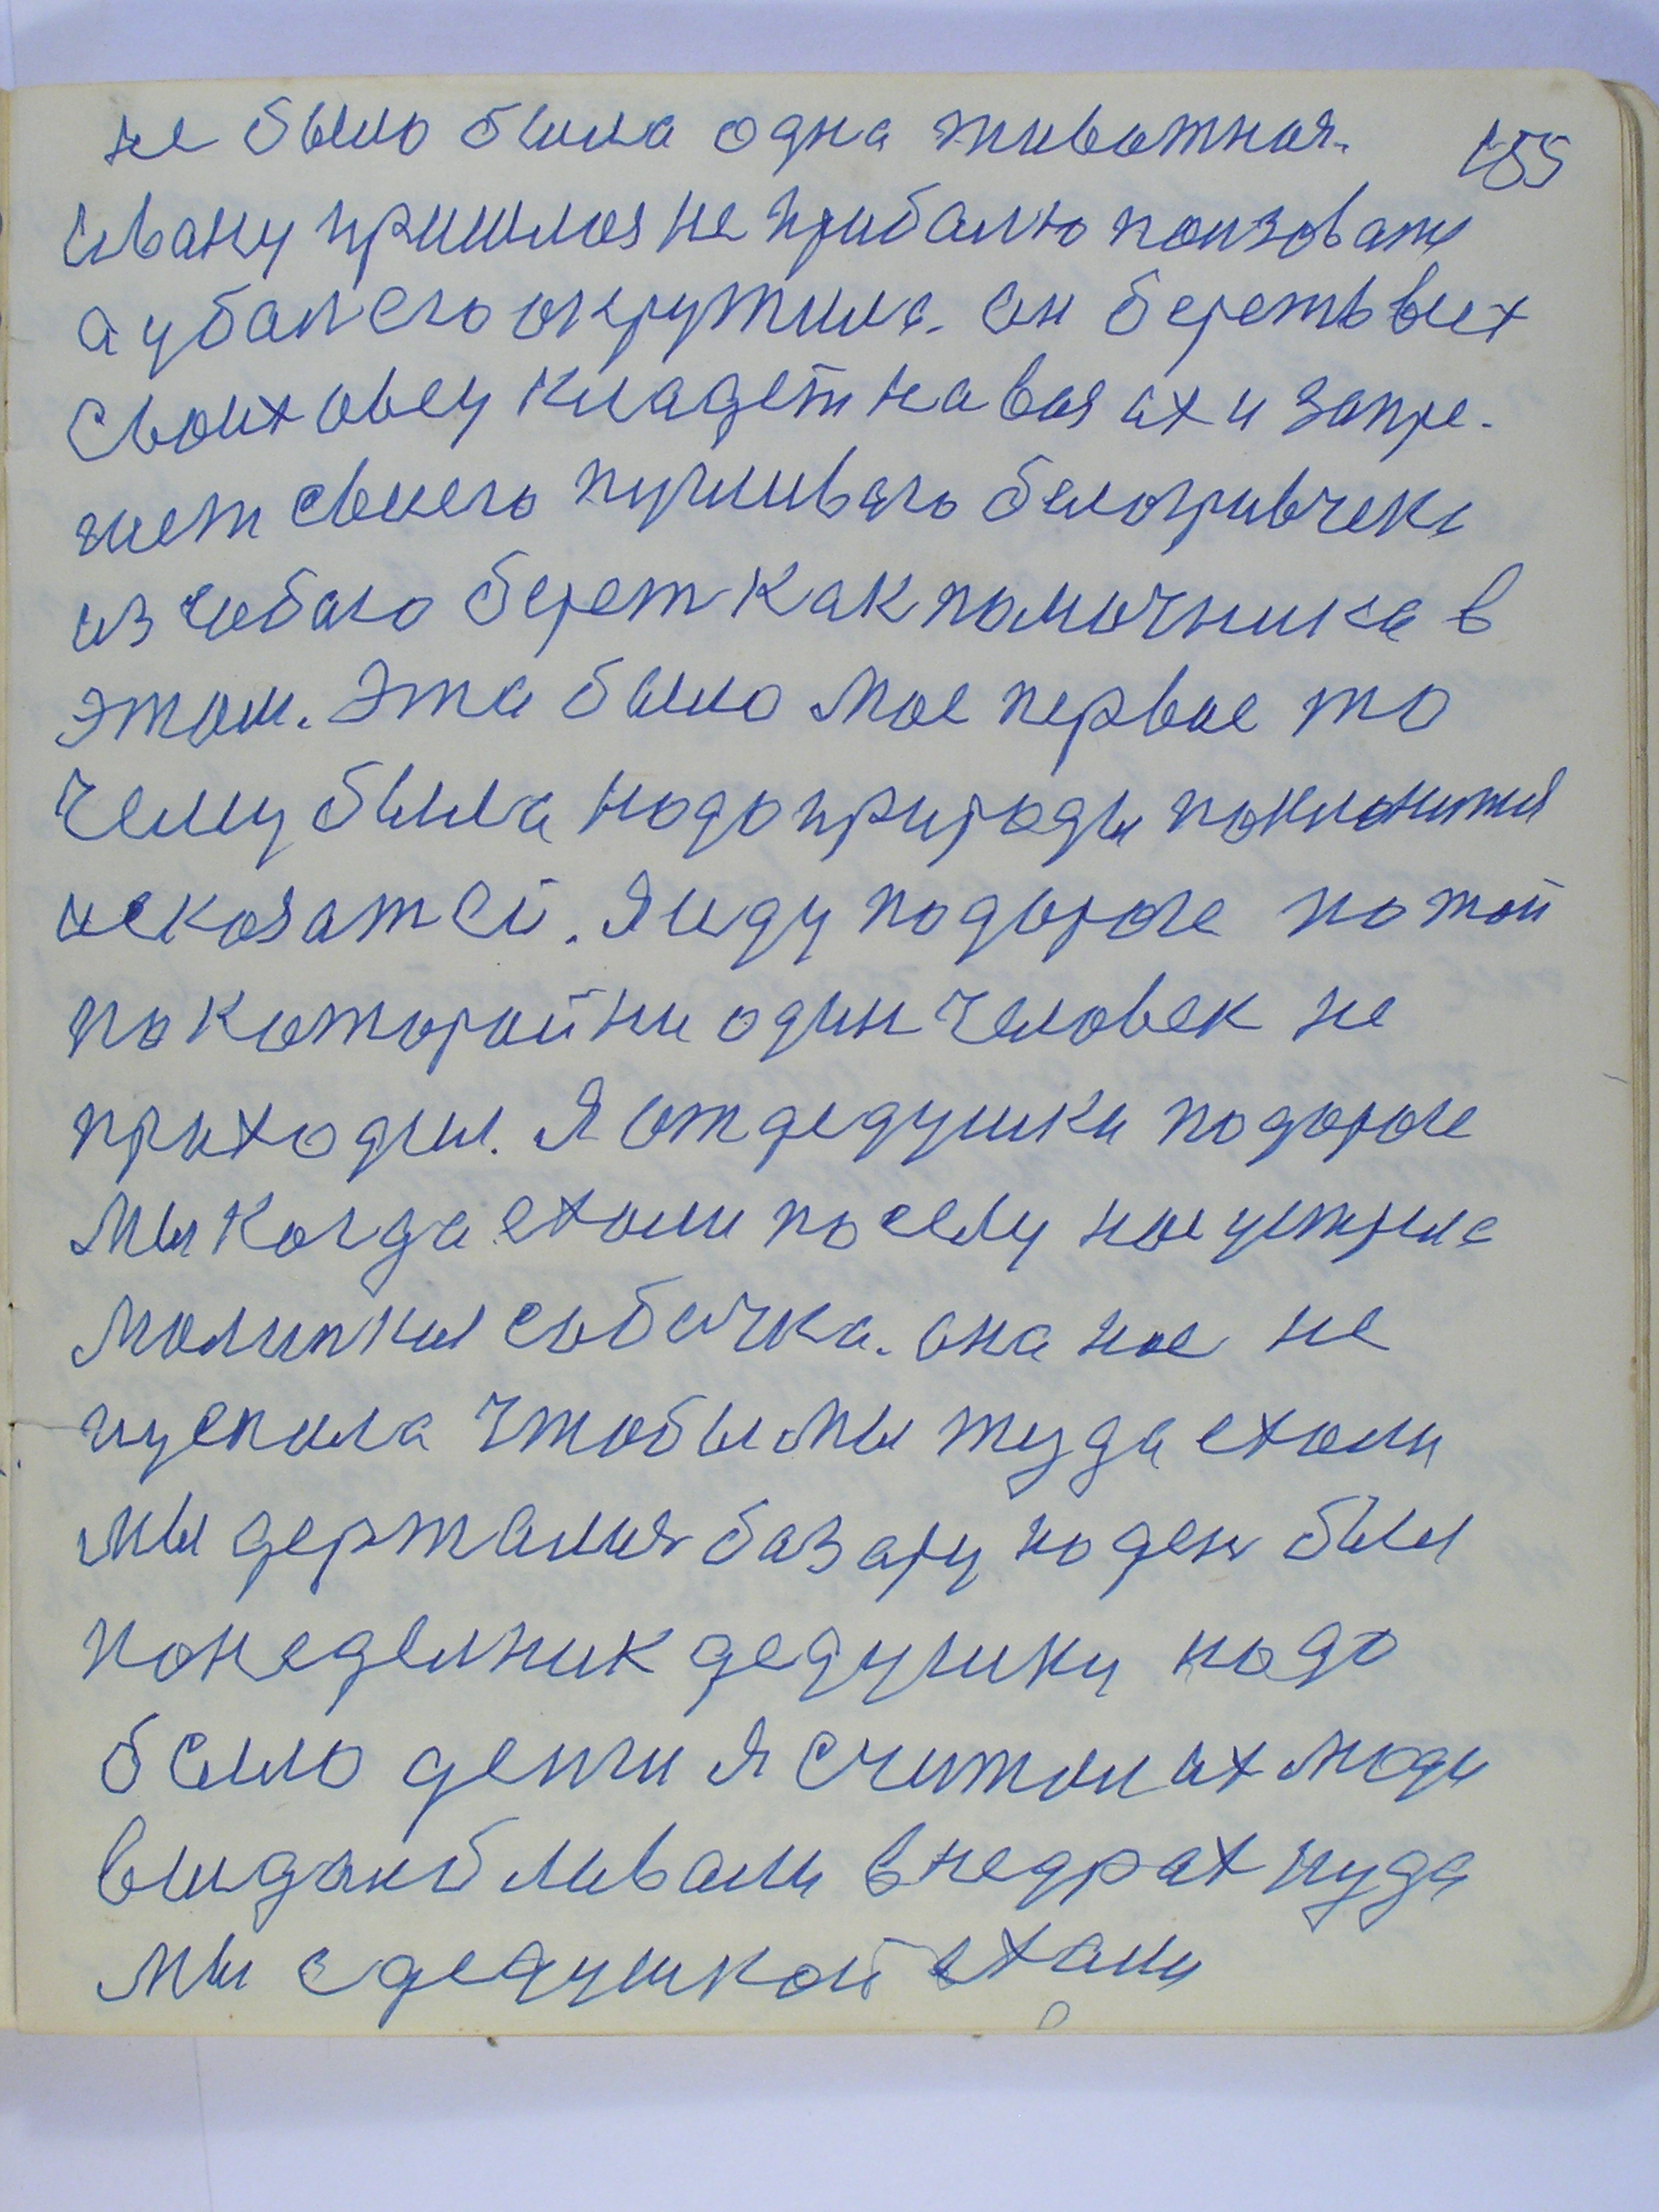 не было была одна животная. 155
Ивану пришлося не прибалю ползоват
а убап его окружила. он береть всех
своих овец кладет на воя их и запре.
жет своего пугливаго белогривчека
из собаго берет как помочника в
этом. Эта было мое первое то
чему была надо природы поклонится
и сказат ей. Я иду по дороге по той
по которой ни один человек не
приходил. Я от дедушки по дороге
Мы когда ехали по селу нас устрела
Малинкия собачка. она нас не
пускала чтобы мы туда ехали
мы держалися базару но ден был
понеделник дедушки надо
было денги я считал их люди
выдаибливали в недрах куда
мы с дедушкой ехали